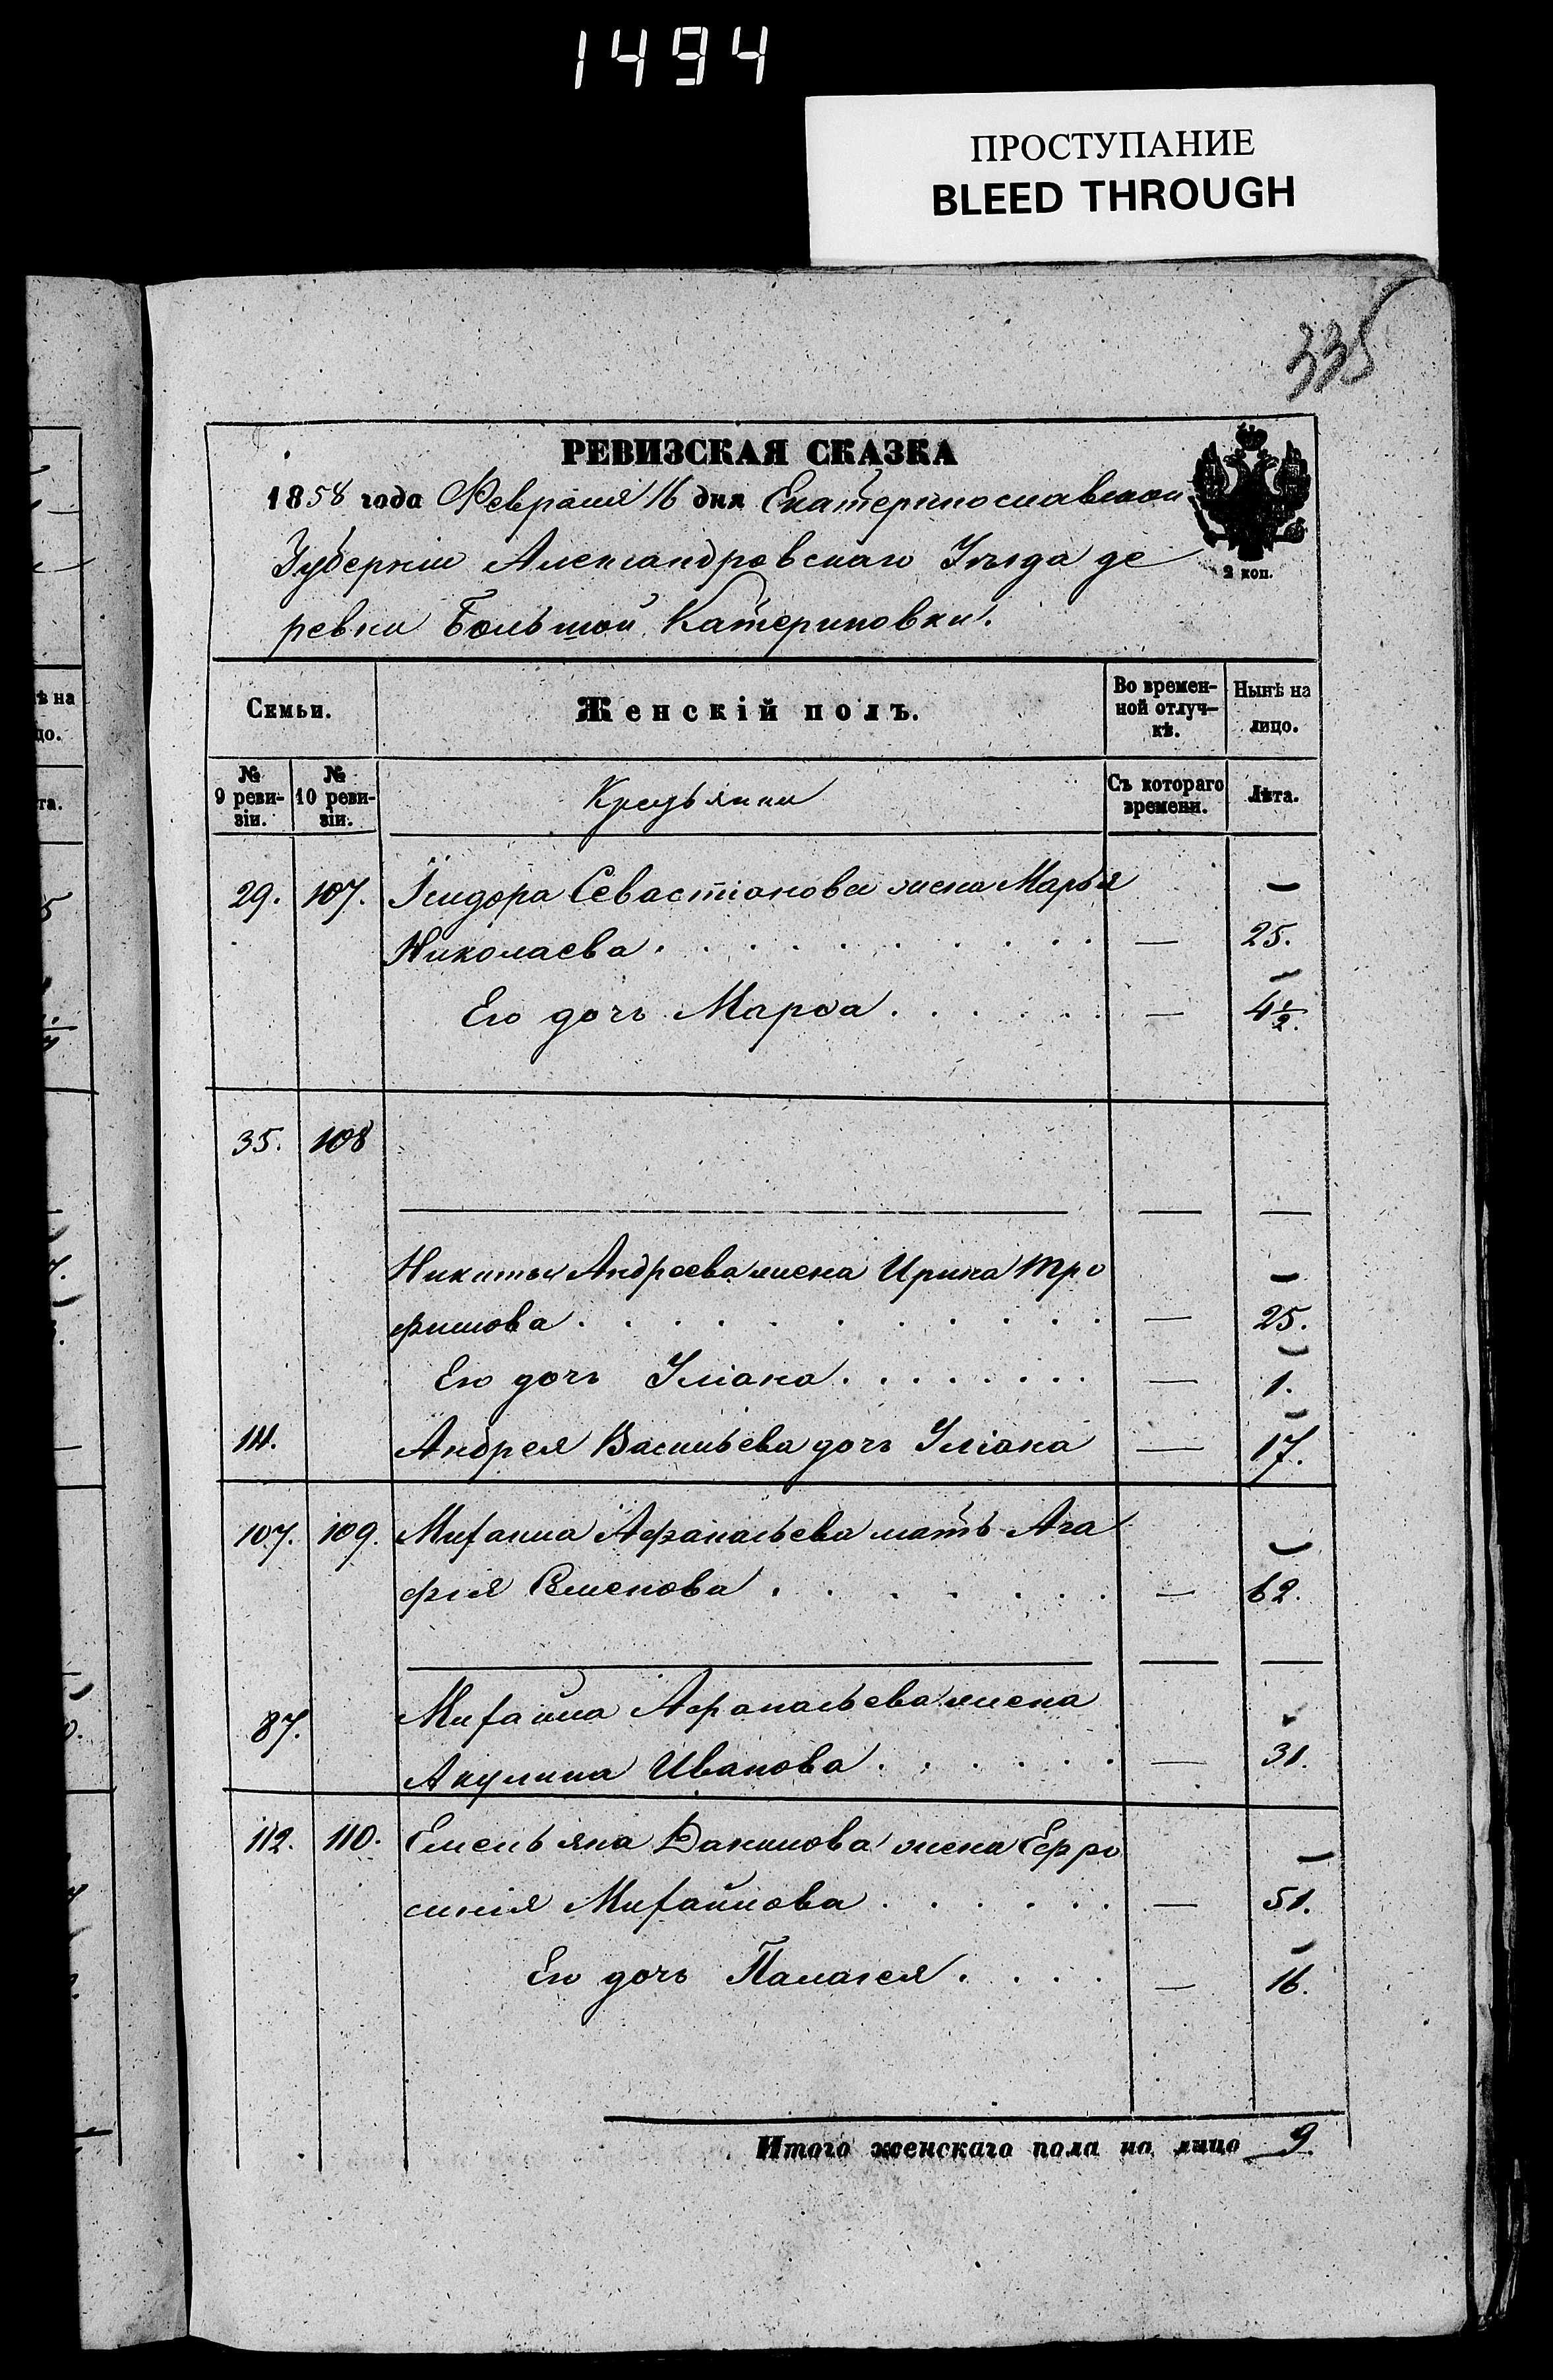 1494
ПРОСТУПАНИЕ
BLEED THROUGH
335
РЕВИЗСКАЯ СКАЗКА
1858 года Февраля 16 дня Екатеринославской
Губерніи Александровскаго Уѣзда де
2 коп.
ревни Большой Катериновки.
Семьи. Женскій полъ. Во времен- Нынѣ на
ной отлуч- лицо.
кѣ.
№ № Крестьянки Съ котораго Лѣта.
9 реви- 10 реви- времени.
зіи. зіи.
29. 107. Исидора Севастіанова жена Марья —
Николаева . . . . . . . . . — 25.
Его дочь Марѳа . . . . . . — 4 1/2.
35. 108
Никиты Андреева жена Ирина Тро
фимова . . . . . . . . . . — 25.
Его дочь Уліана . . . . . . . . — 1.
111. Андрея Васильева дочь Уліана — 17.
107. 109. Михаила Афанасьева мать Ага
фія Семенова . . . . . . . — 62.
Михаила Афанасьева жена
87. Акулина Иванова . . . . . . — 31.
112. 110. Емельяна Данилова жена Ефро
синія Михайлова . . . . . . — 51.
Его дочь Палагея . . . . — 16.
Итого женскаго пола на лицо 9.
ѣ на
цо.
та.